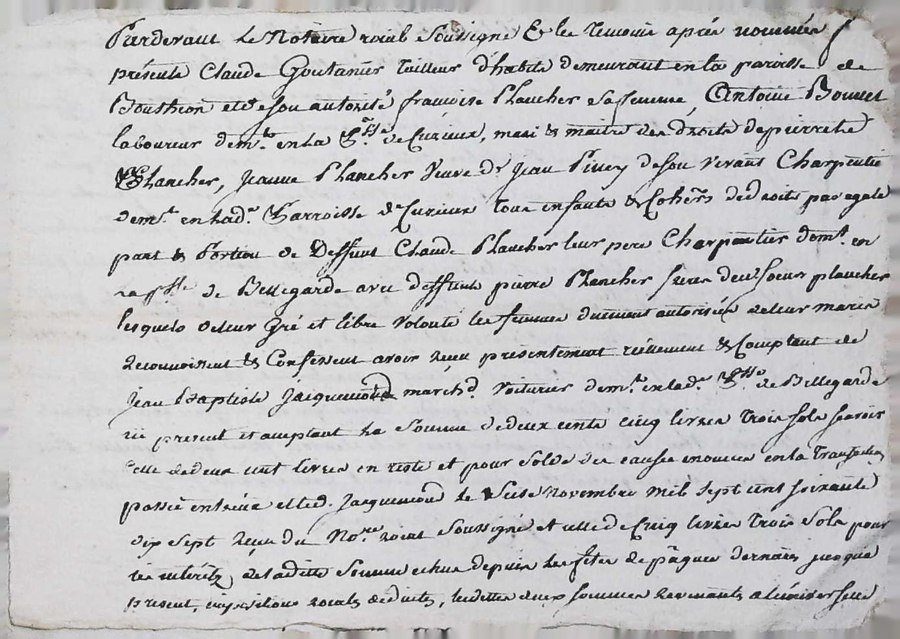 Pardevant Le Notaire roial Soussigné & les Temoins après nommés
présents Claude Goutanier tailleur d'habits demeurant en la paroisse de
Bouthéon et de son autorité françoise Plancher sa femme, Antoine Bonnet
laboureur demt. en la Psse de Cuzieux, mari & maitre des droits de pierrette
Plancher, Jeanne Plancher Veuve de Jean Piney de son vivant Charpentier
demt. en lad. Parroisse de Cuzieux tous enfants & Cohers de droits par egale
part & Portion de Deffunt Claude Plancher leur pere Charpentier demt. en
la psse de Bellegarde avec deffunt pierre Plancher frere des soeurs plancher
lesquels de leur Gré et libre Volonté les femmes duement autorisées de leur maris
Reconnoissent & Confessent avoir reçu présentement réellement & Comptant de
Jean Baptiste Jacquemond marchd. Voiturier demt. en lad. Psse de Bellegarde
ici present et acceptant La Somme de deux cents cinq livres Trois sols scavoir
celle de deux cent livres en reste et pour Solde des causes enoncées en la Transaction
passée entre eux et led. Jacquemond le Seise Novembre mil sept cent soixante
dix sept reçue du Nore roial Soussigné et celle de Cinq livres Trois Sols pour
les interêts de laditte Somme echue depuis les fêtes de pâques dernières jusqu'à
present, impositions roiales deduites, lesdittes deux sommes revenants a l'universelle